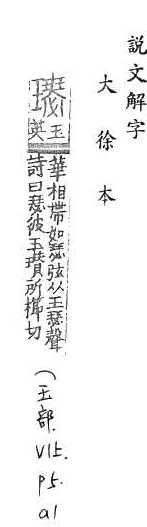 說文解字
大徐本
玉英
華相帶如瑟弦从玉瑟聲
詩曰瑟彼玉瓚所櫛切
(玉部.
V1上.
p5.
a1